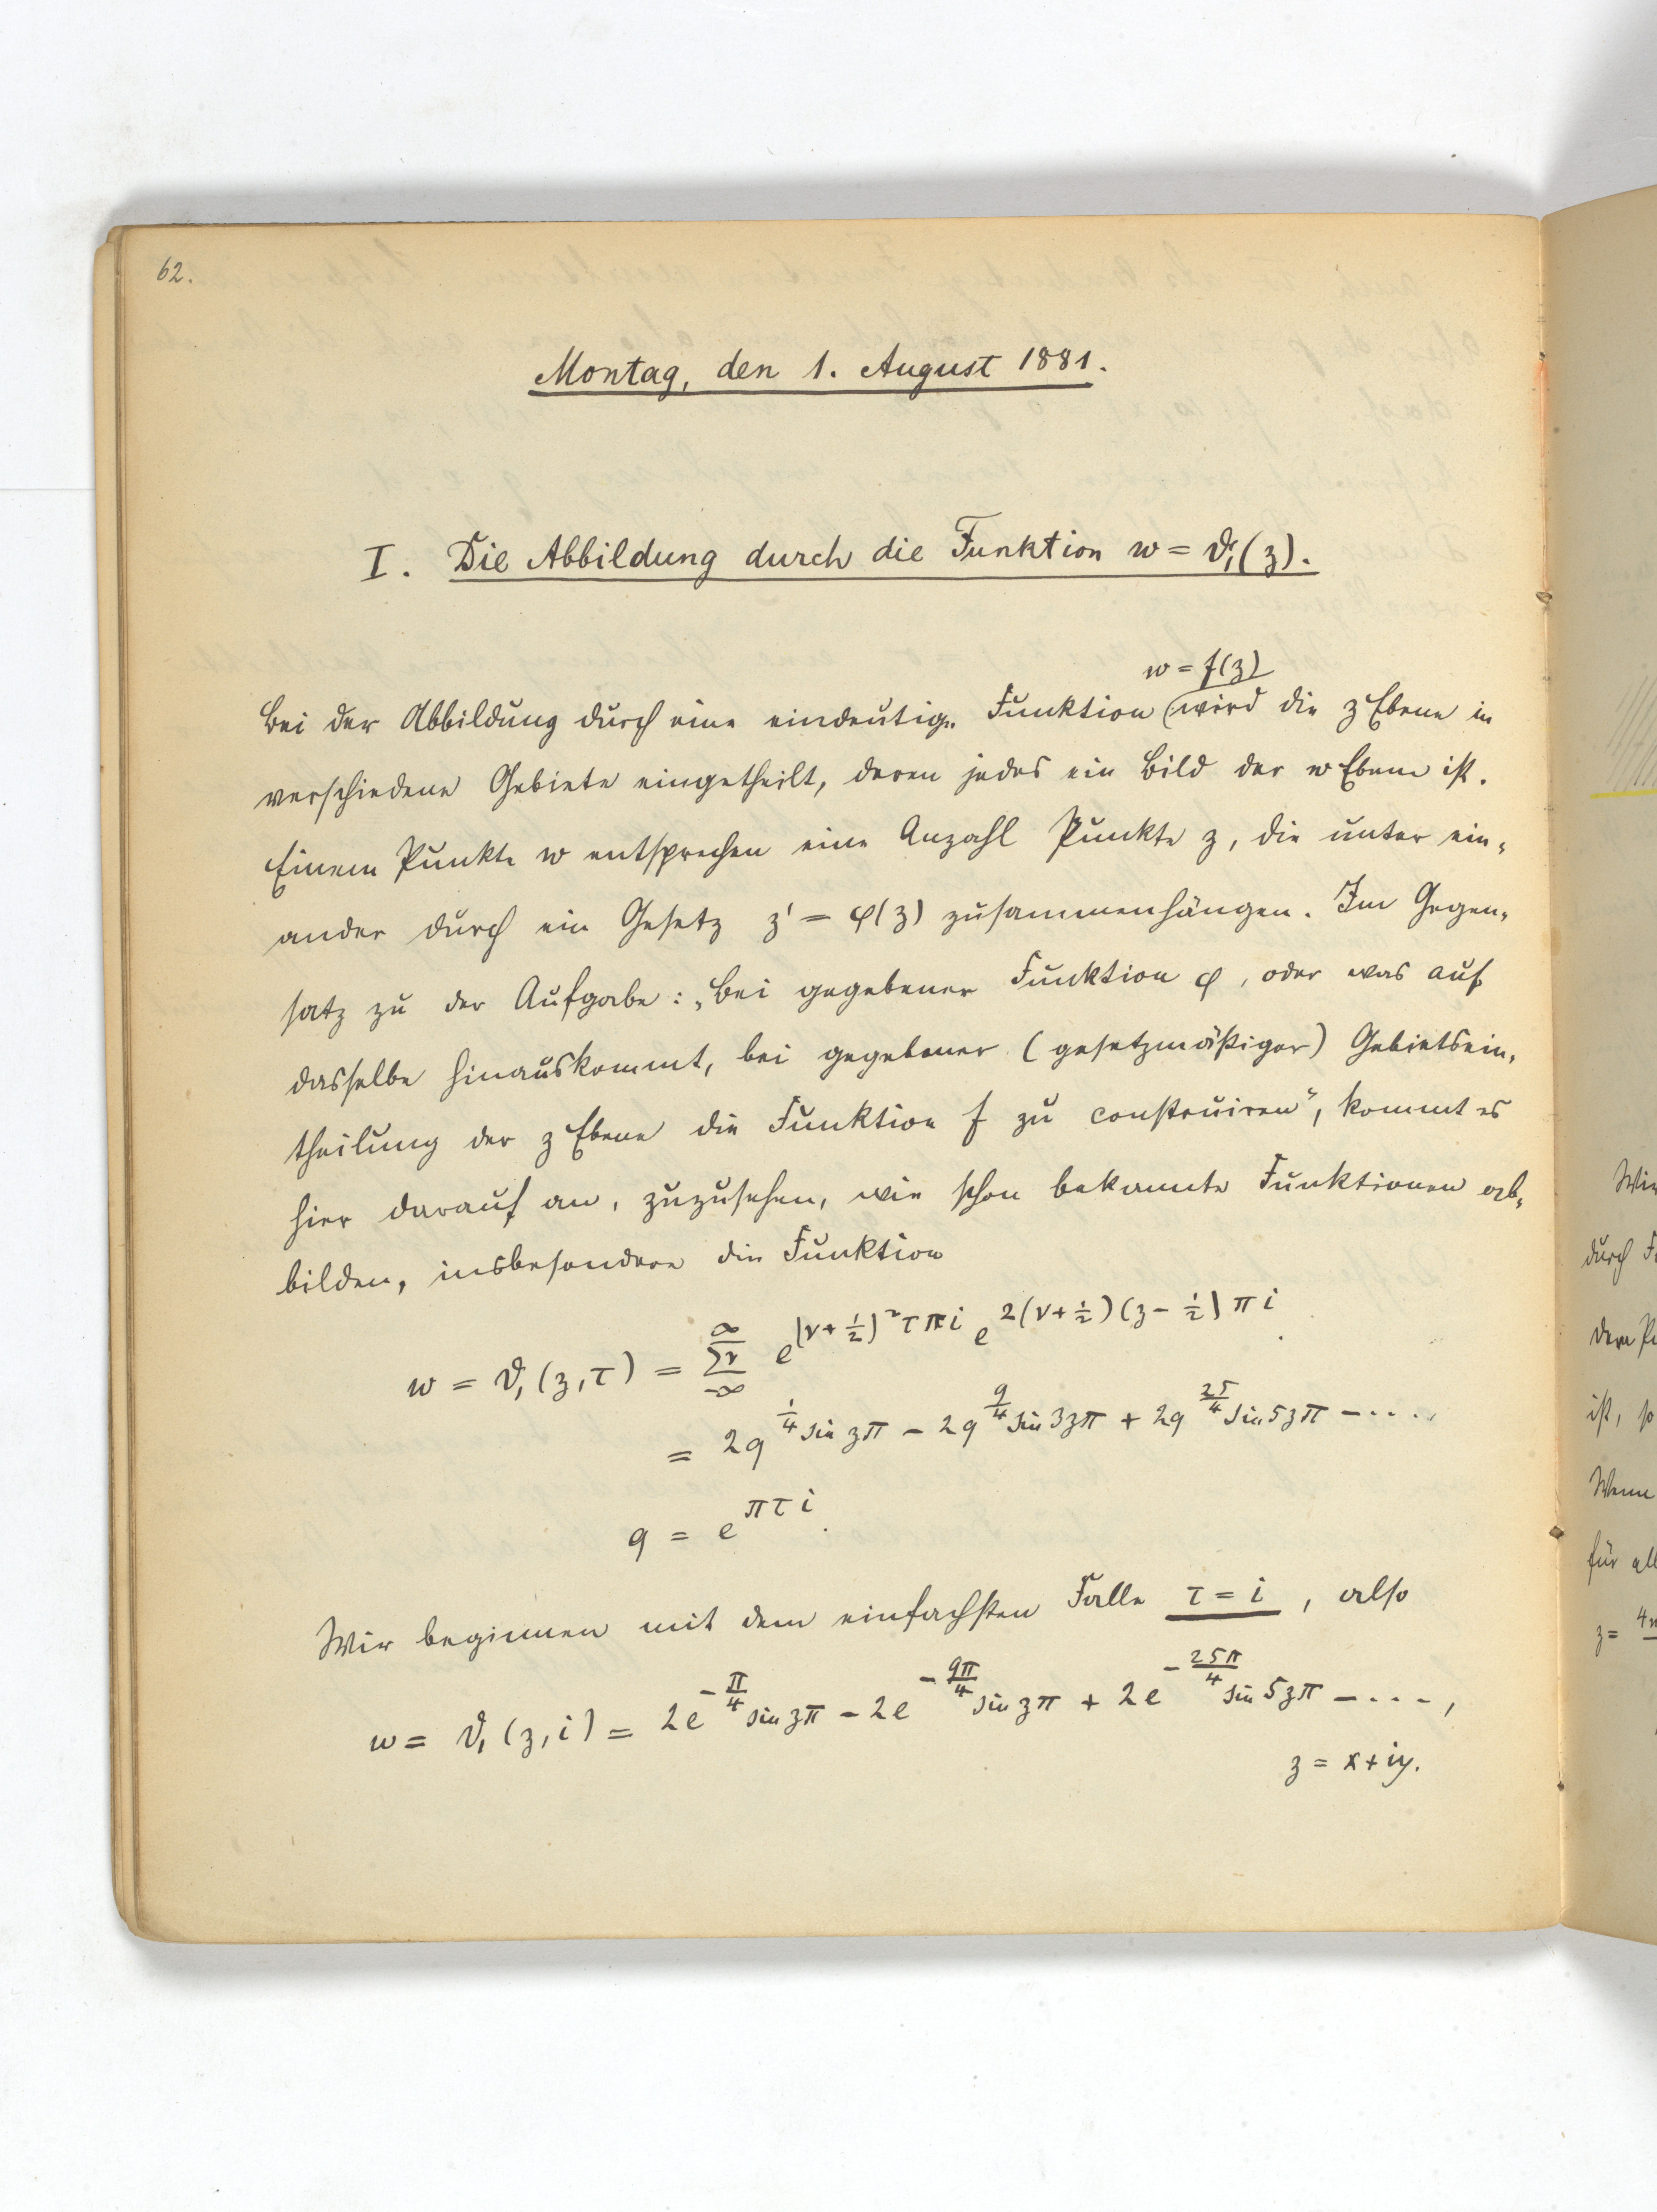 62.
Montag, den 1. August 1881.
I. Die Abbildung durch die Funktion w = ϑ₁(z).
w = f(z)
Bei der Abbildung durch eine eindeutige Funktion wird die z Ebene in
verschiedene Gebiete eingetheilt, deren jedes ein Bild der w Ebene ist.
Einem Punkte w entsprechen eine Anzahl Punkte z, die unter ein-
ander durch ein Gesetz z' = φ(z) zusammenhängen. Im Gegen-
satz zu der Aufgabe: „Bei gegebener Funktion φ, oder was auf
dasselbe hinauskommt, bei gegebener (gesetzmäßiger) Gebietsein-
theilung der z Ebene die Funktion f zu construiren", kommt es
hier darauf an, zuzusehen, wie schon bekannte Funktionen ab-
bilden, insbesondere die Funktion
w = ϑ₁(z,τ) = ∑ν_{-∞}^{∞} e^{(ν+½)²τπi} e^{2(ν+½)(z-½)πi}.
= 2q^{1/4} sin zπ − 2q^{9/4} sin 3zπ + 2q^{25/4} sin 5zπ − ....
q = e^{πτi}.
Wir beginnen mit dem einfachsten Falle τ = i, also
w = ϑ₁(z,i) = 2e^{-π/4} sin zπ − 2e^{-9π/4} sin zπ + 2e^{-25π/4} sin 5zπ − ....,
z = x + iy.
durch
ist, so
Wenn
für all
z =